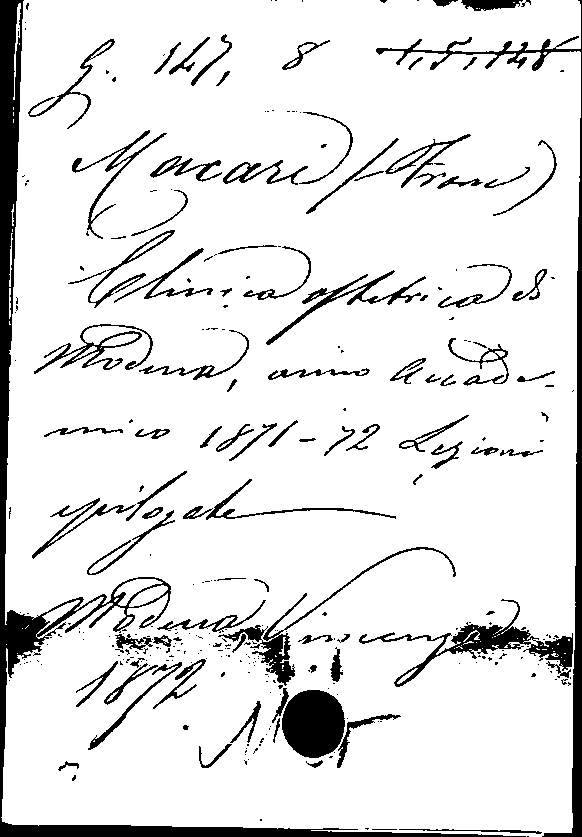 G. 147, 8 1,5,128.
Macari (Franc)
Clinica ostetrica di
Modena, anno Accade-
mico 1871-72 Lezioni
epilogate
Modena, Vincenzi
1872.